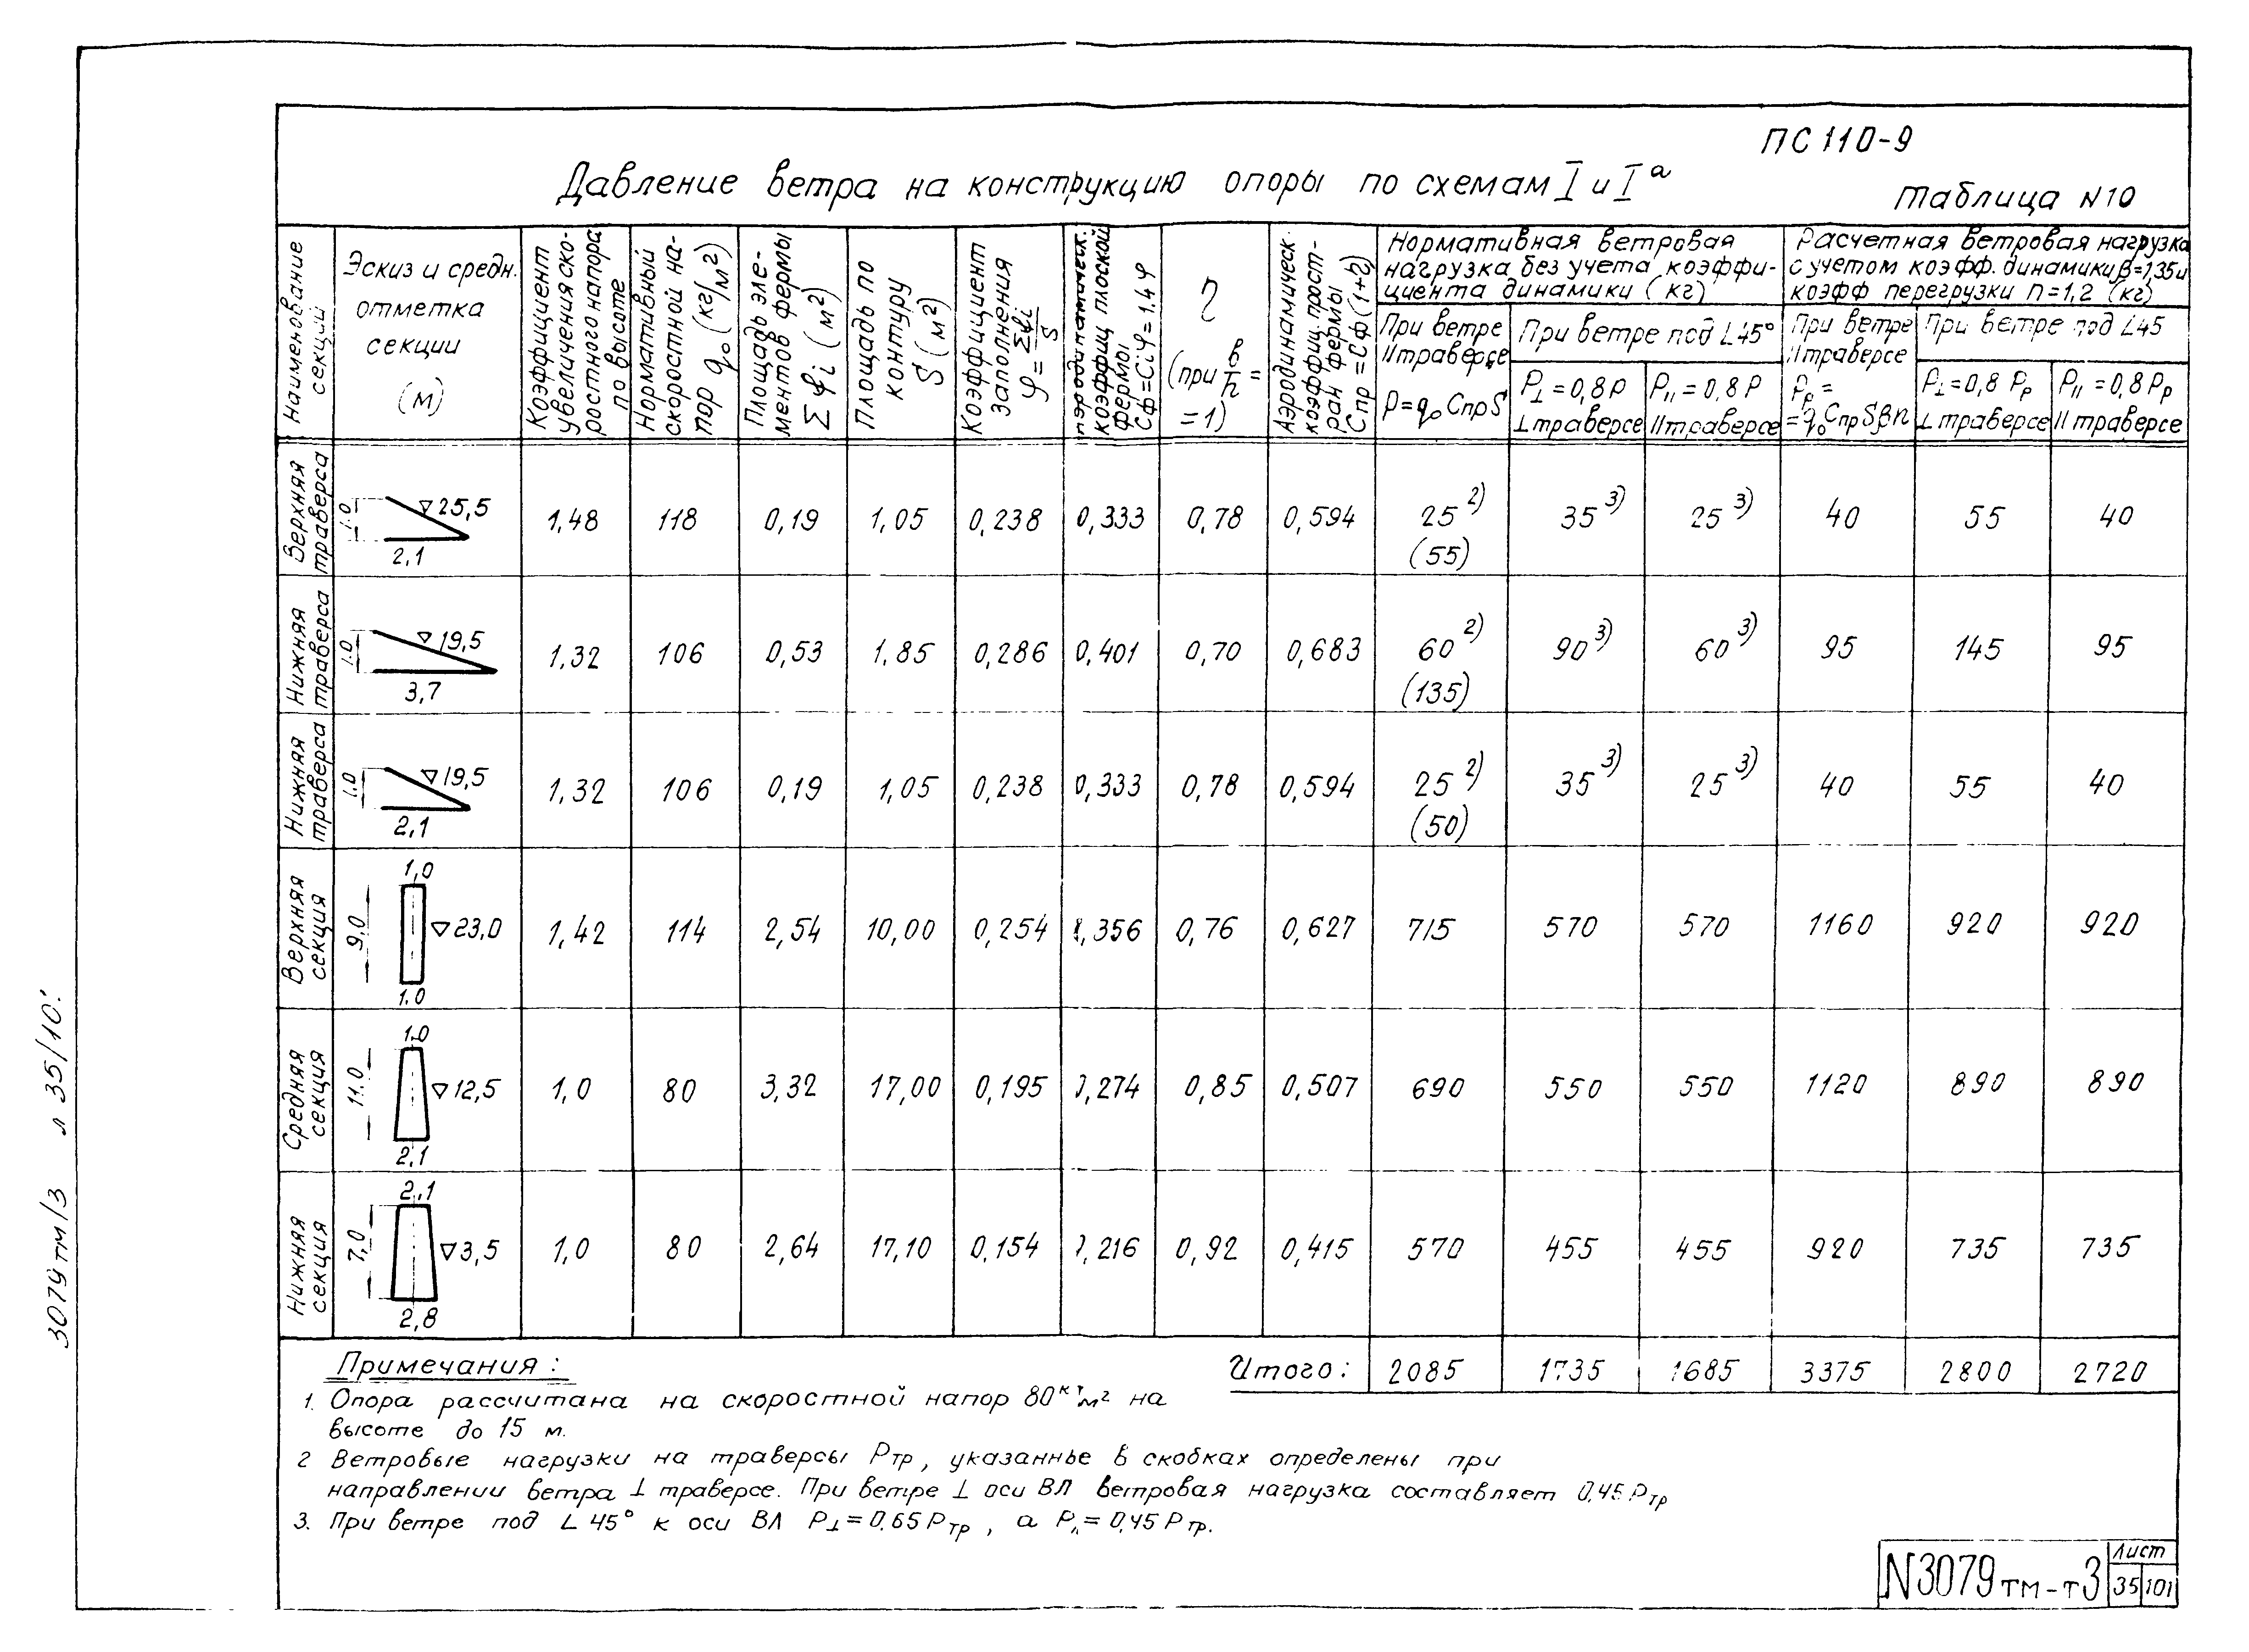 ПС 110-9
Давление ветра на конструкцию опоры по схемам I и Iа
Таблица N10
Наименование секций
Эскиз и средн. отметка секции (м)
Коэффициент увеличения скоростного напора по высоте
Нормативный скоростной напор q₀ (кг/м²)
Площадь элементов фермы Σfi (м²)
Площадь по контуру S (м²)
Коэффициент заполнения φ = Σfi/S
коэффиц плоской фермы Cф=Ciφ=1.4φ
η (при b/h = = 1)
Аэродинамическ. коэффиц. прост- ран фермы Спр = Сф(1+η)
Нормативная ветровая нагрузка без учета коэффи- циента динамики (кг)
При ветре II траверсе P=q₀ Спр S
При ветре под ∠45°
P⊥=0,8P ⊥ траверсе
P,, = 0,8 P II траверсе
Расчетная ветровая нагрузка с учетом коэфф. динамики β=1,35 и коэфф перегрузки n=1,2 (кг)
При ветре II траверсе Pр = =q₀ Спр Sβn
При ветре под ∠45
P⊥=0,8 Pр ⊥ траверсе
P,, =0,8 Pр II траверсе
Верхняя траверса 1.0 ▽25,5 2,1 1,48 118 0,19 1,05 0,238 0,333 0,78 0,594 25 2) (55) 35 3) 25 3) 40 55 40
Нижняя траверса 1.0 ▽19,5 3,7 1,32 106 0,53 1,85 0,286 0,401 0,70 0,683 60 2) (135) 90 3) 60 3) 95 145 95
Нижняя траверса 1.0 ▽19,5 2,1 1,32 106 0,19 1,05 0,238 0,333 0,78 0,594 25 2) (50) 35 3) 25 3) 40 55 40
Верхняя секция 1,0 9,0 ▽23,0 1.0 1,42 114 2,54 10,00 0,254 0,356 0,76 0,627 715 570 570 1160 920 920
Средняя секция 1.0 11.0 ▽12,5 2,1 1,0 80 3,32 17,00 0,195 0,274 0,85 0,507 690 550 550 1120 890 890
Нижняя секция 2,1 7,0 ▽3,5 2,8 1,0 80 2,64 17,10 0,154 0,216 0,92 0,415 570 455 455 920 735 735
Итого: 2085 1735 1685 3375 2800 2720
Примечания:
1. Опора рассчитана на скоростной напор 80 кг/м² на
высоте до 15 м.
2 Ветровые нагрузки на траверсы Pтр, указанные в скобках определены при
направлении ветра ⊥ траверсе. При ветре ⊥ оси ВЛ ветровая нагрузка составляет 0,45 Pтр
3. При ветре под ∠45° к оси ВЛ P⊥=0.65 Pтр, а P,,=0,45 Pтр.
N3079тм-т3
Лист
35 101
3079тм/3 л 35/10